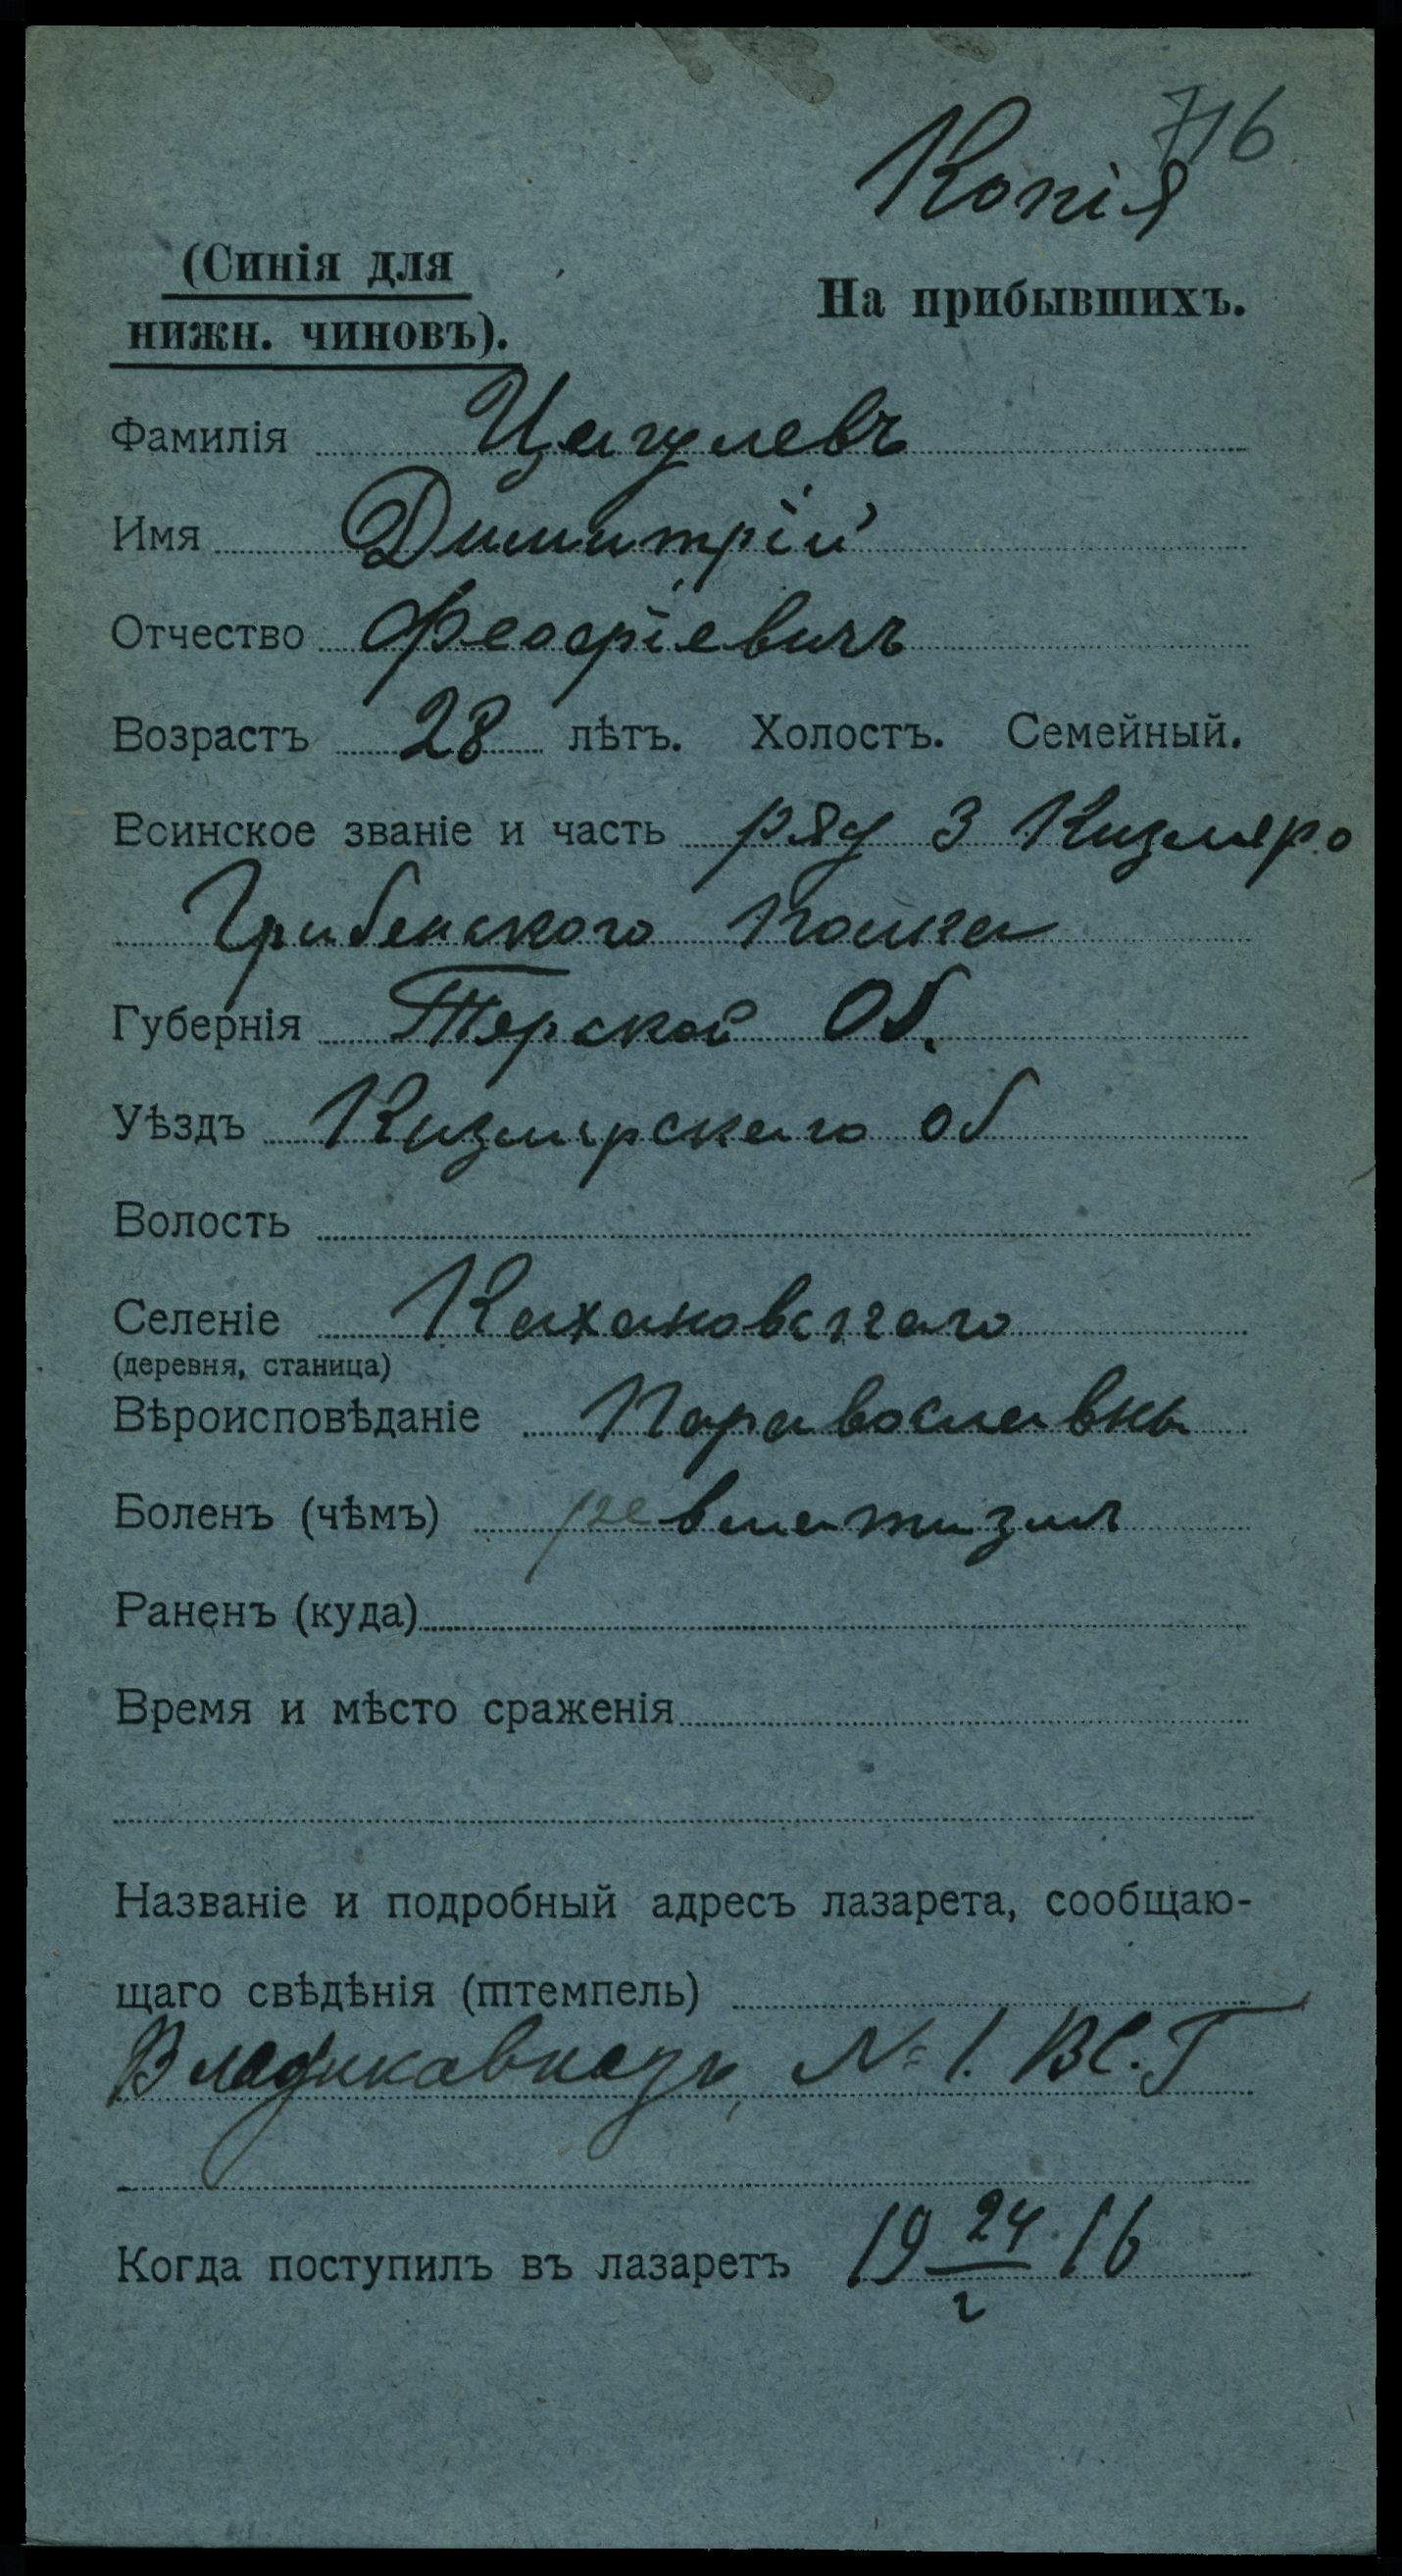 716
Копія
(Синія для
нижн. чиновъ).
На прибывшихъ.
Фамилія Цагулевъ
Имя Димитрій
Отчество
Возрастъ 28 лѣтъ. Холостъ. Семейный.
Воинское званіе и часть ряд 3 Кизляро
Грибенского полка
Губернія Тярской Об.
Уѣздъ Кизлярскаго об
Волость
Селеніе Кахановскаго
(деревня, станица)
Вѣроисповѣданіе Паравославны
Боленъ (чѣмъ) ревматизмъ
Раненъ (куда)
Время и мѣсто сраженія
Названіе и подробный адресъ лазарета, сообщаю-
щаго свѣдѣнія (штемпель)
Владикавказъ, № 1. ВС.Г
Когда поступилъ въ лазаретъ 19 24/2 16